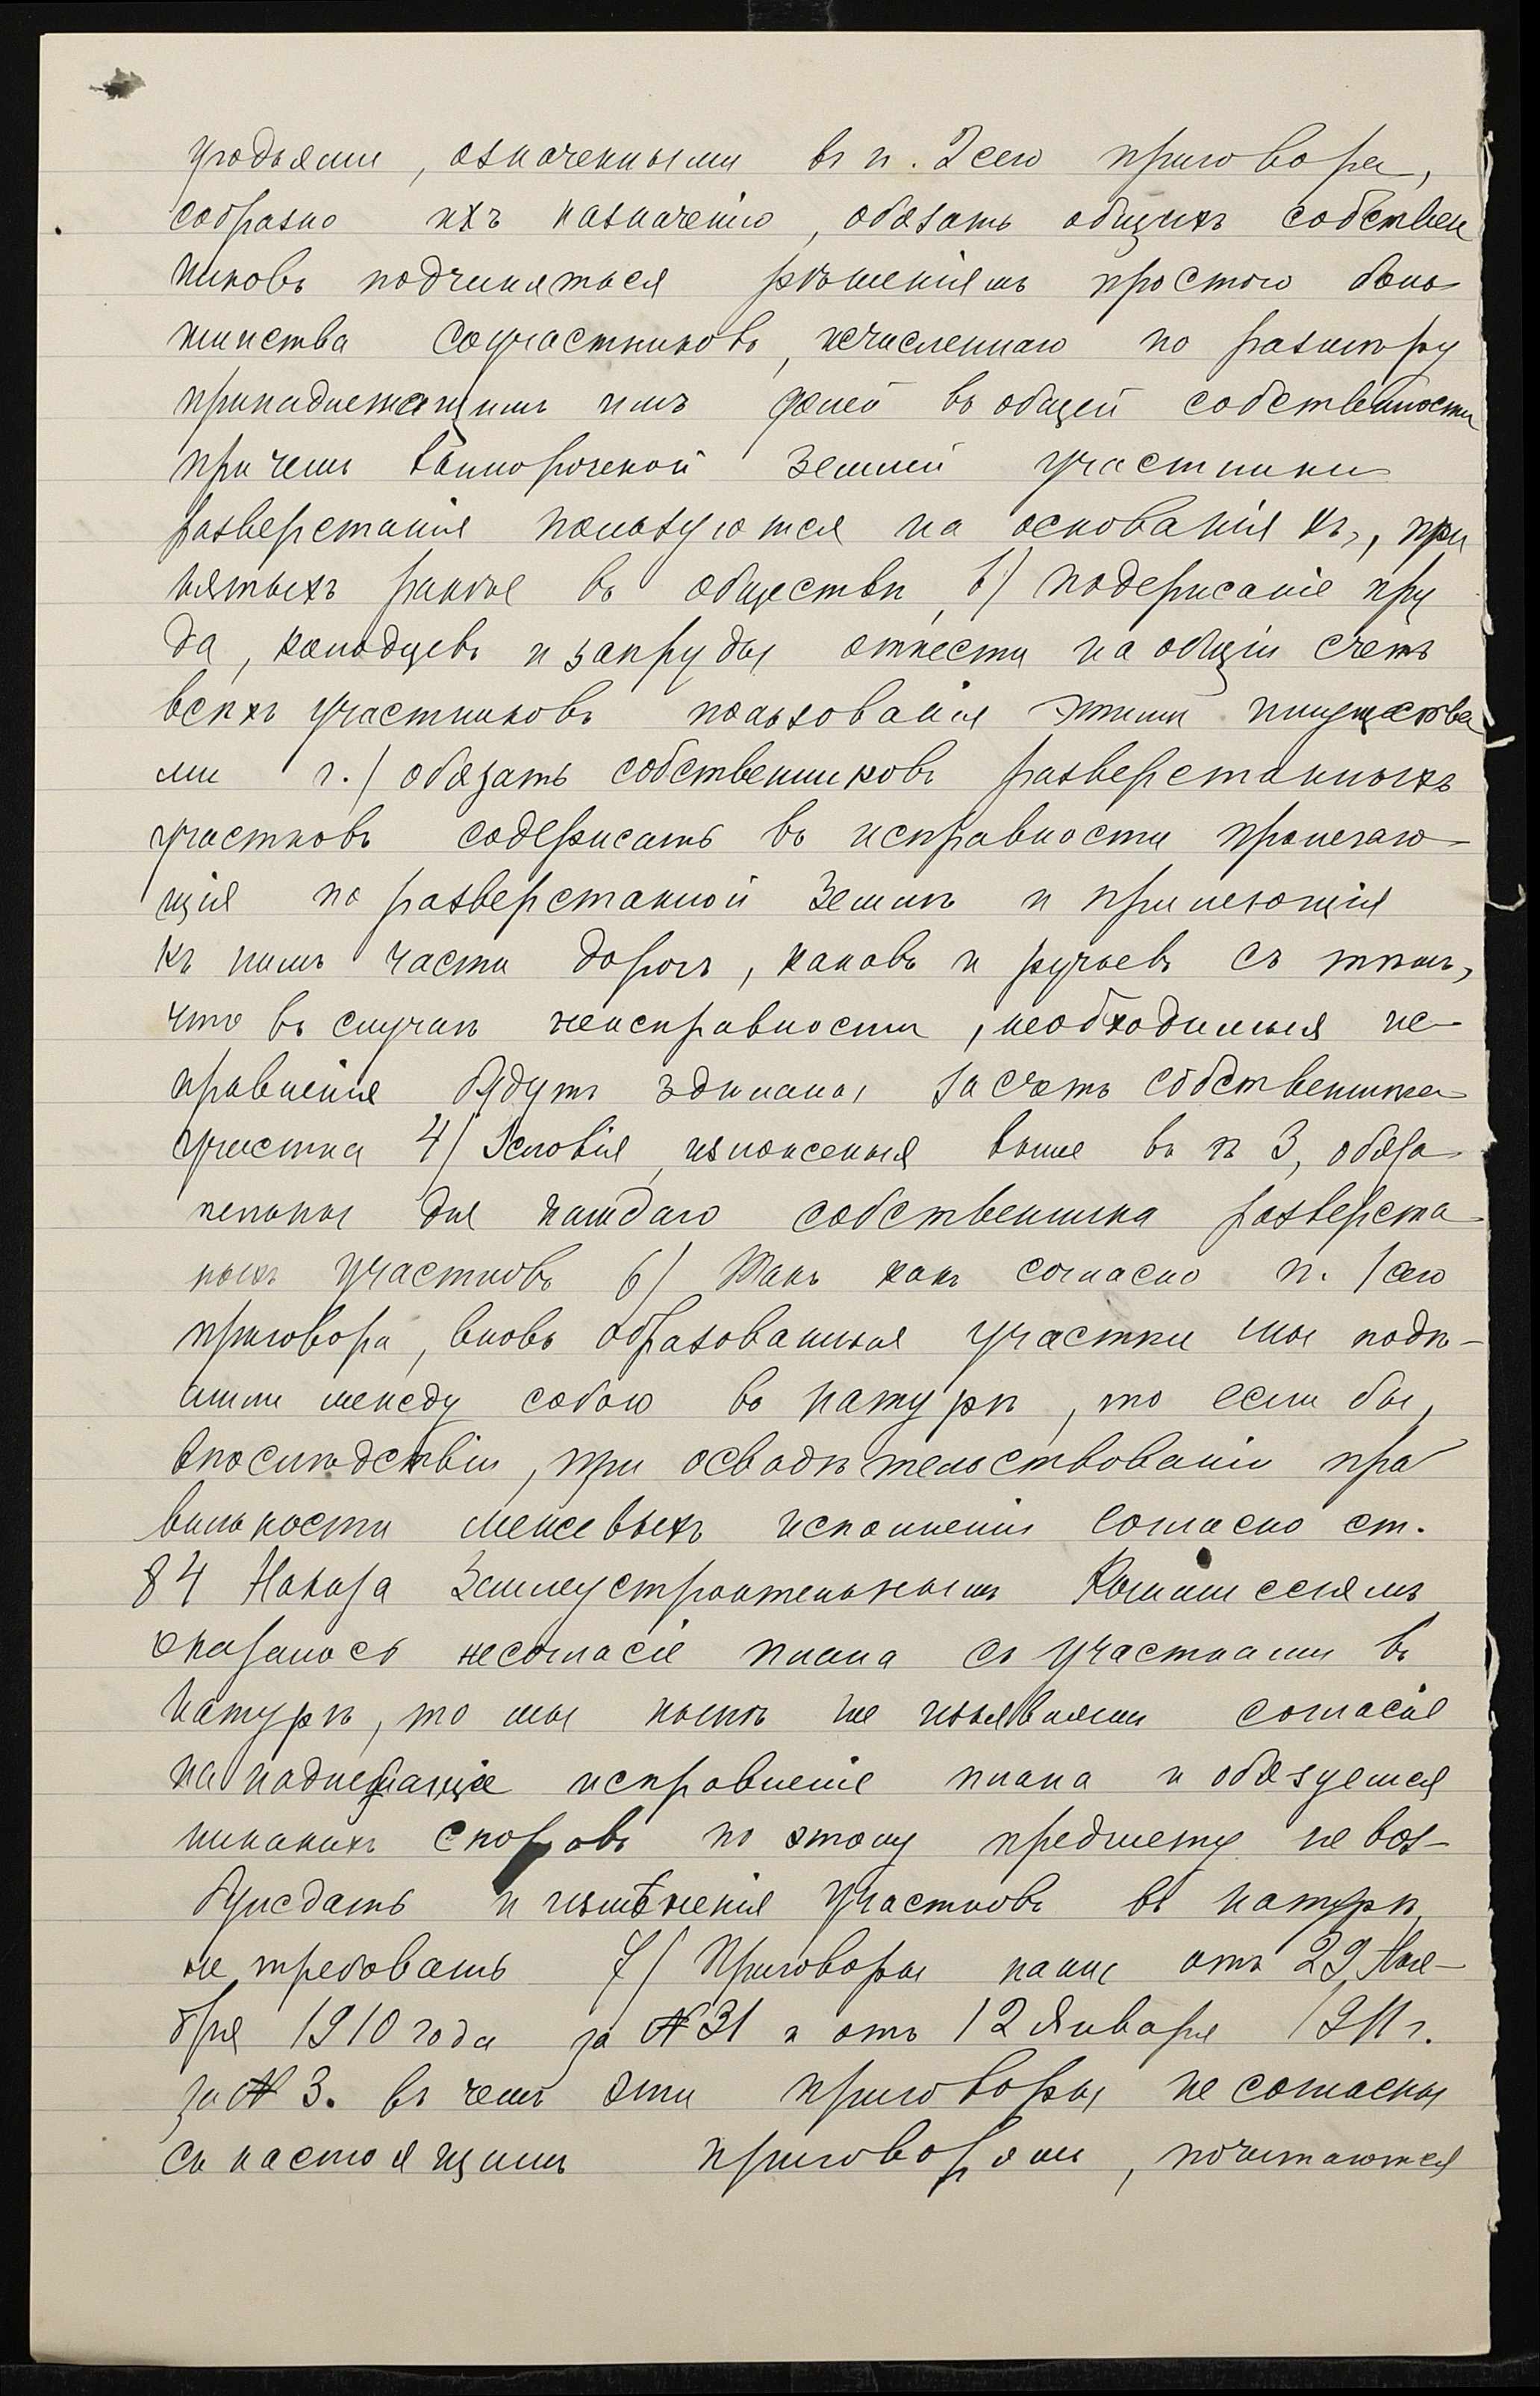 угодьями, означенными въ п. 2 сего приговора,
собразно ихъ назначенію, обязать общихъ собствен
никовъ подчиняться рѣшеніямъ простого боль
шинства соучастниковъ, исчисленнаго по размѣру
принадлежащимъ имъ долей въ общей собственности
при чемъ земмей участники
разверстанія пользуются на основаніяхъ, при
нятыхъ ранѣе въ обществѣ, в) подержаніе пру
да, колодцевъ и запруды отнести на общій счетъ
всѣхъ участниковъ пользованія этими имуществa
ми г.) обязать собственниковъ разверстанныхъ
участковъ содержать въ исправности пролегаю-
щія по разверстанной землѣ и прилегающія
къ нимъ части дорогъ, канавъ и ручьевъ съ тѣмъ,
что въ случаѣ неисправности, необходимыя ис-
правленія будутъ здѣланы за счетъ собственника
участка 4) Условія, изложенныя выше въ п 3, обяза-
тельны для каждаго собственника разверста-
ныхъ участковъ 6) Такъ какъ согласно п. 1 сего
приговора, вновь образованныя участки мы подѣ-
лили между собою въ натурѣ, то если бы,
впослѣдствіи, при освадѣтельствованіи пра
вильности межевыхъ исполненій согласно ст.
84 Наказа Землеустроительнымъ Комиссіямъ
оказалось несогласіе плана съ участками въ
натурѣ, то мы нынѣ же изъявляемъ согласіе
на надлежащіе исправленіе плана и обязуемся
никакихъ споровъ по этому предмету не воз-
буждать и измѣненія участковъ въ натурѣ
не требовать 7) Приговоры наши отъ 29 Ноя-
бря 1910 года за № 31 и отъ 12 Января 1911 г.
за № 3. въ чемъ эти приговоры не согласны
съ настоящимъ приговоромъ, почитаются